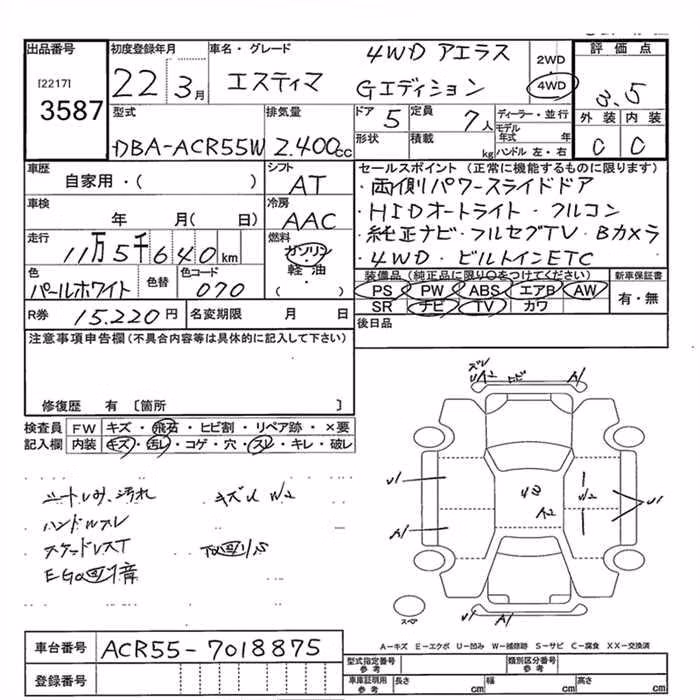 出品番号 初度登録年月 車名・グレード 評価点
[2217] 3587
22 3月 エスティマ 4WD アエラス Gエディション 2WD 4WD 3.5
外装 内装
C C
型式 排気量 ドア 5 定員 7人 ディーラー・並行
DBA-ACR55W 2.400cc 形状 積載 kg モデル年式 年
ハンドル 左・右
車歴 シフト セールスポイント (正常に機能するものに限ります)
自家用・( ) AT ・両側パワースライドドア
車検 冷房 ・HIDオートライト・フルコン
年 月( 日) AAC ・純正ナビ・フルセグTV・Bカメラ
走行 燃料 ・4WD・ビルトインETC
11万5千640km ガソリン
軽油
・( )
色 色替 色コード 装備品 (純正品に限り○をつけてください) 新車保証書
パールホワイト 070 PS PW ABS エアB AW 有・無
SR ナビ TV カワ
R券 15.220円 名変期限 月 日 後日品
注意事項申告欄 (不具合内容等は具体的に記入して下さい)
修復歴 有 〔箇所 〕
検査員 FW キズ・飛石・ヒビ割・リペア跡・×要
記入欄 内装 キズ・汚レ・コゲ・穴・スレ・キレ・破レ
シートしみ、汚れ
ハンドルスレ
A1
U1
U1
A2
A1
U1 A1
スペア
A-キズ E-エクボ U-凹み W-補修跡 S-サビ C-腐食 XX-交換済
車台番号 ACR55-7018875
登録番号
型式指定番号 参考 類別区分番号 参考
車庫証明用 参考 長さ cm 幅 cm 高さ cm